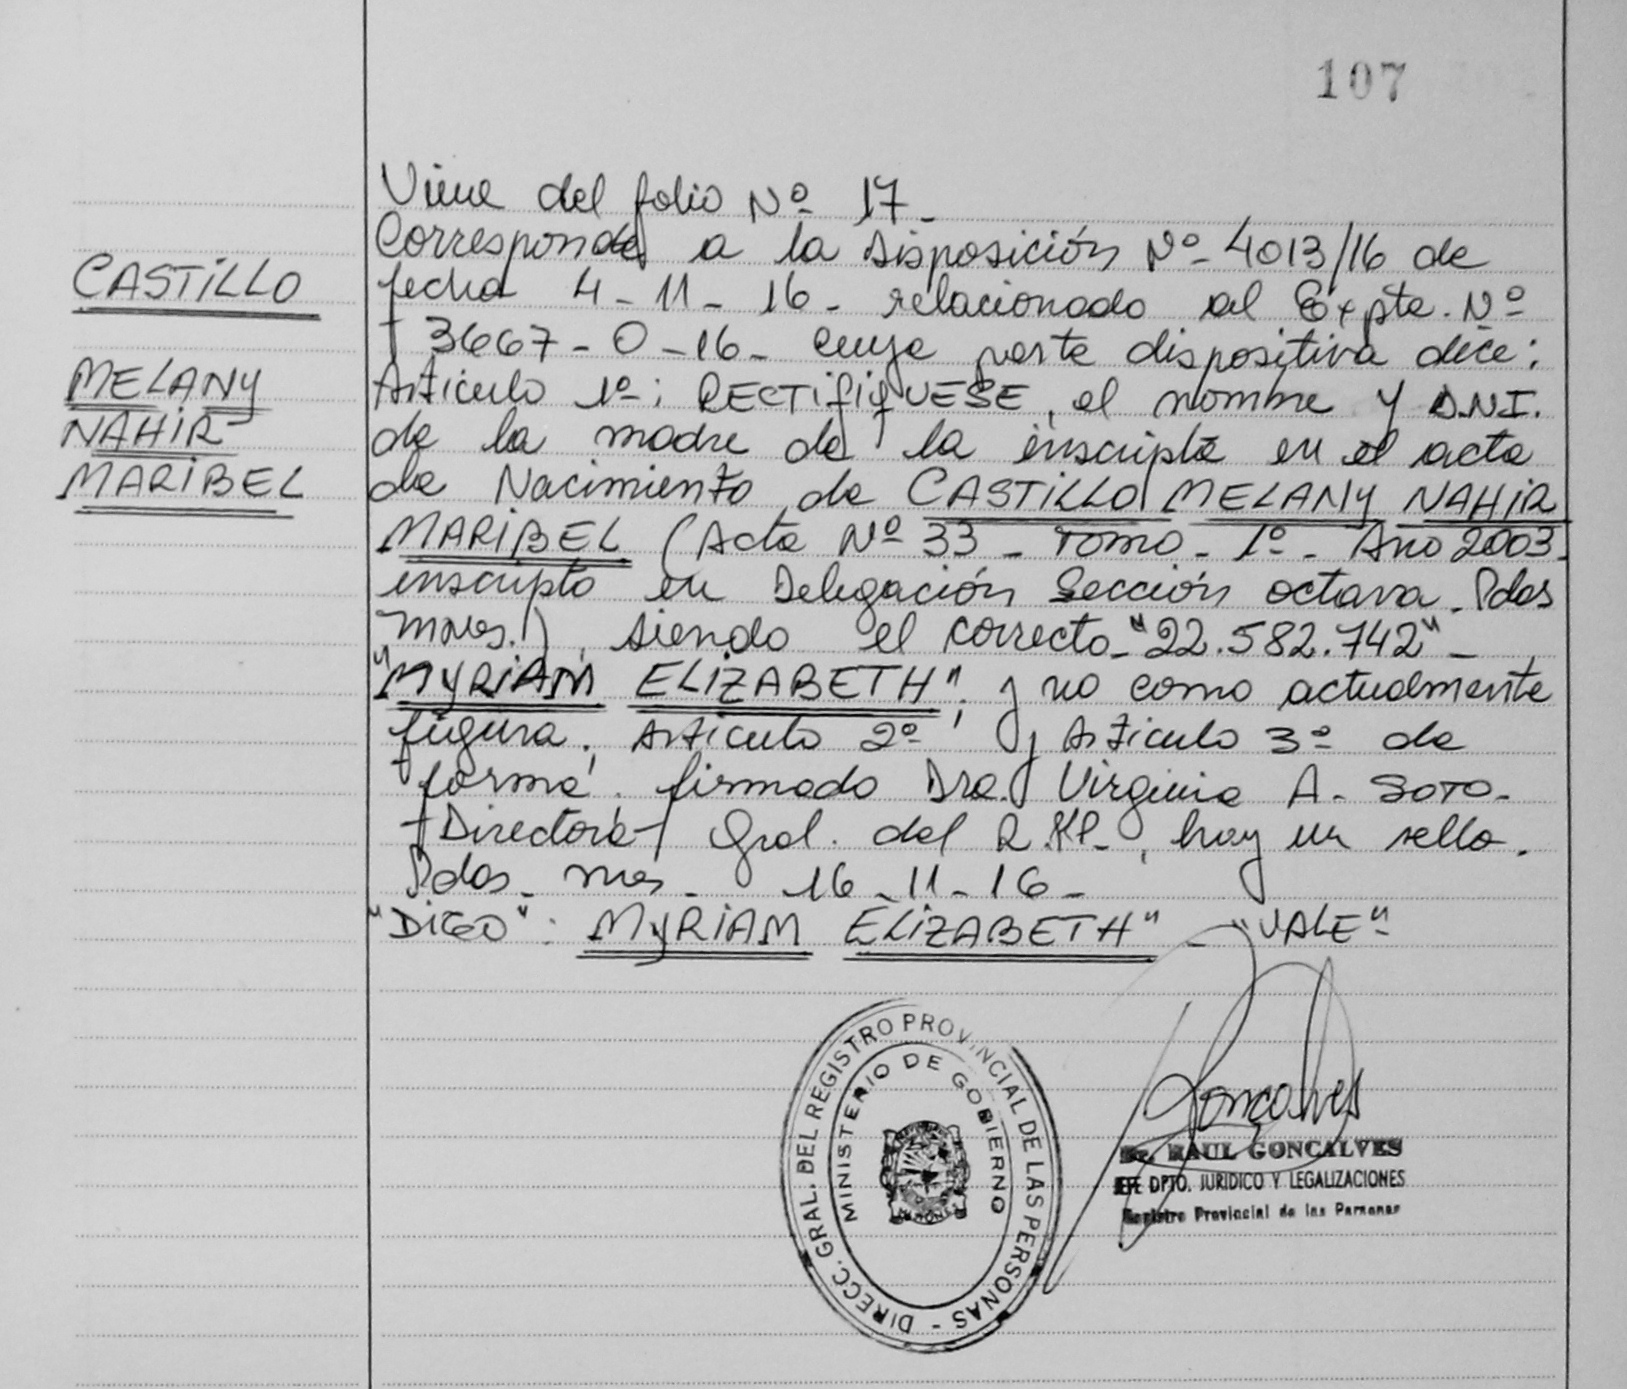 107
CASTILLO
MELANY
NAHIR
MARIBEL
Viene del folio Nº 17_
Corresponde a la Disposición Nº 4013/16 de
fecha 4-11-16- relacionado al Expte. Nº
3667-O-16- cuya parte dispositiva dice:
Articulo 1º: RECTIFIQUESE, el nombre y D.N.I.
de la madre de la inscripta en el acta
de Nacimiento de CASTILLO MELANY NAHIR
MARIBEL (Acta Nº 33 - Tomo - 1º - Año 2003.
inscripto en Delegación Sección octava. Pdas
Mnes.), siendo el correcto "22.582.742" -
"MYRIAM ELIZABETH"; y no como actualmente
figura, Articulo 2º y Articulo 3º de
forma. firmado Dra. Virginia A. SOTO-
Directora Gral. del R.P. , hay un sello.
Pdas. mes. 16-11-16-
"DIGO": MYRIAM ELIZABETH" - "VALE"
DIRECC. GRAL. DEL REGISTRO PROVINCIAL DE LAS PERSONAS -
MINISTERIO DE GOBIERNO
Goncalves
Dr. RAUL GONCALVES
DPTO. JURIDICO Y LEGALIZACIONES
Registro Provincial de las Personas